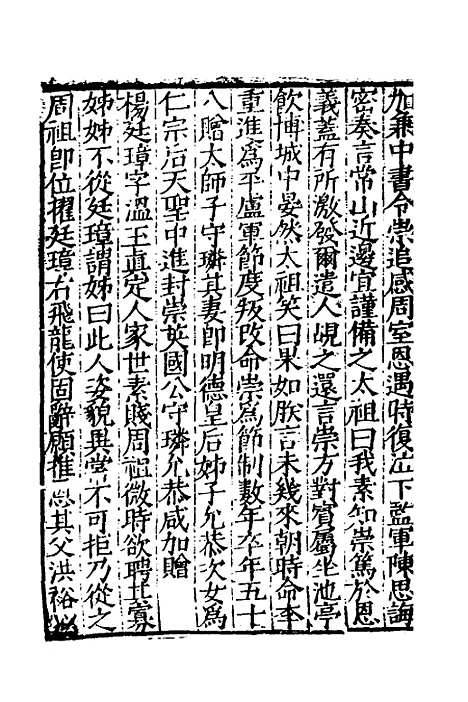 加兼中書令崇追感周室恩遇時復泣下監軍陳思誨
密奏言常山近邊宜謹備之太祖曰我素知崇篤於恩
義蓋有所激發爾遣人覘之還言崇方對賓屬坐池亭
飲博城中晏然太祖笑曰果如朕言未幾來朝時命李
重進爲平盧軍節度叛改命崇爲節制數年卒年五十
八贈太師子守璘其妻卽明德皇后姊子允恭次女爲
仁宗后天聖中進封崇英國公守璘允恭咸加贈
楊廷璋字溫玉眞定人家世素賤周祖微時欲聘其寡
姊姊不從廷璋謂姊曰此人姿貌異常不可拒乃從之
周祖卽位擢廷璋右飛龍使固辭願推恩其父洪裕